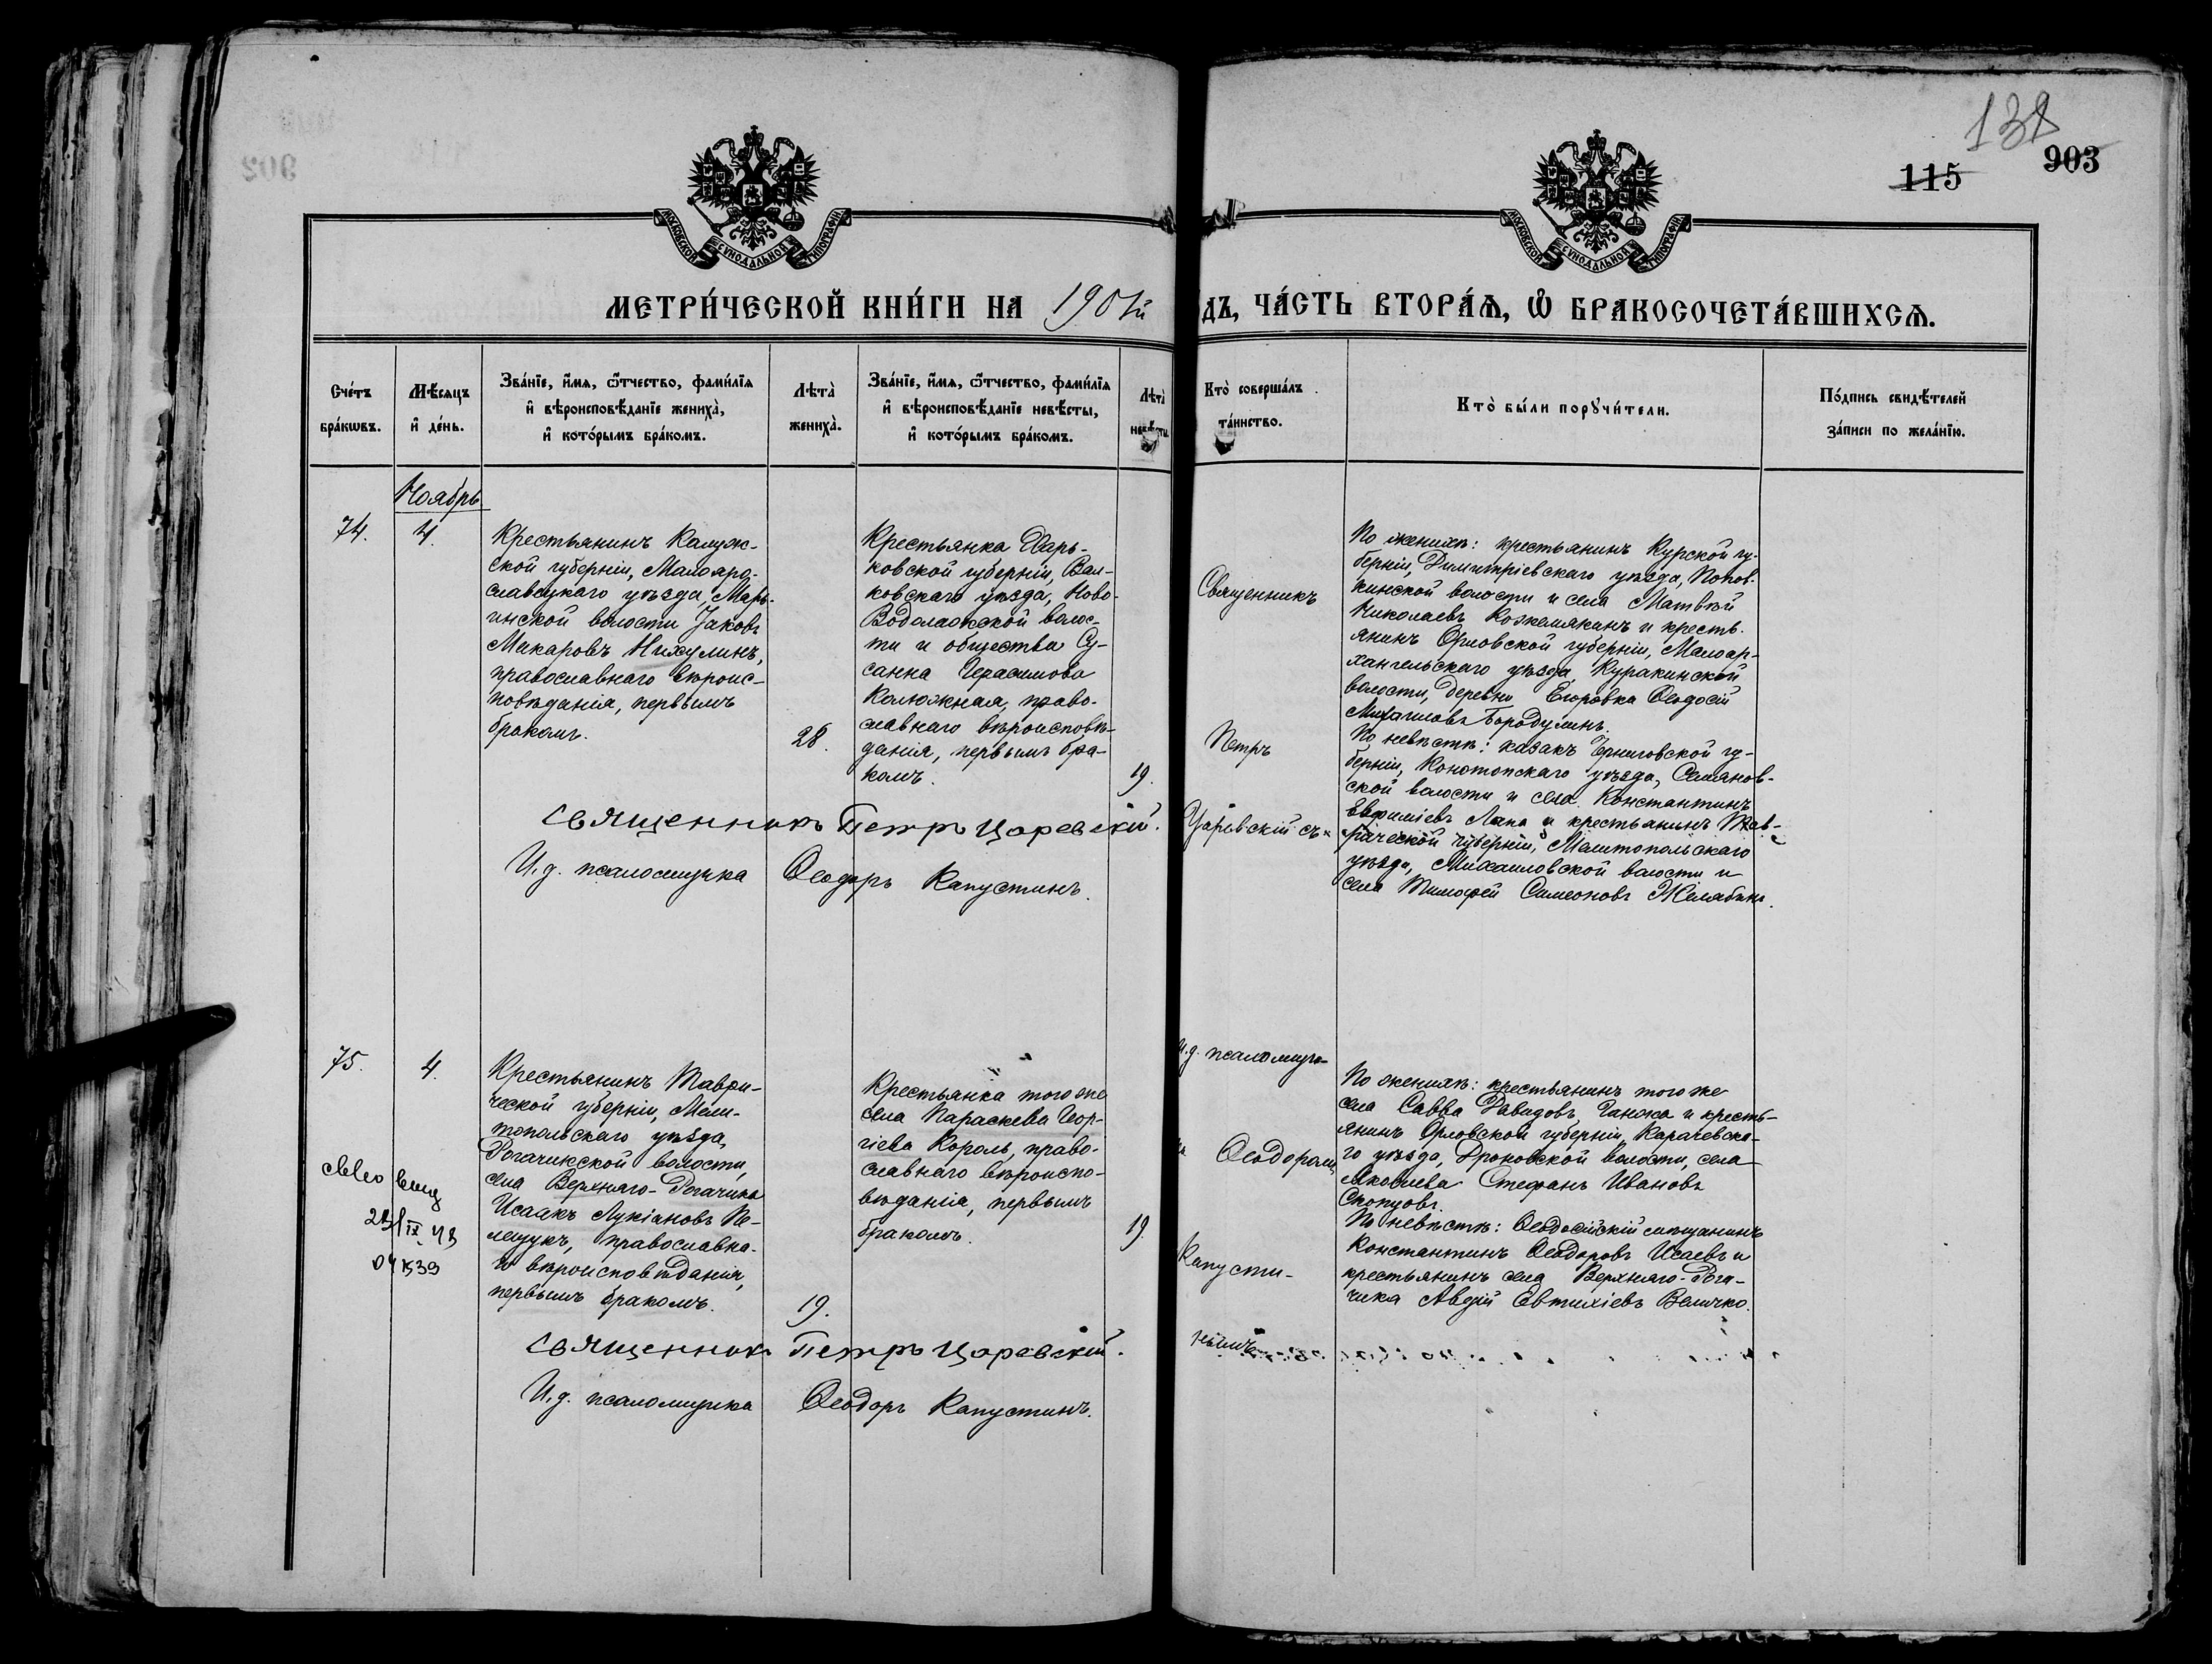 138
115
903
МОСКОВСКОЙ СУНОДАЛЬНОЙ ТИПОГРАФІИ
МОСКОВСКОЙ СУНОДАЛЬНОЙ ТИПОГРАФІИ
МЕТРИ́ЧЕСКОЙ КНИ́ГИ НА 1901й
дъ, ЧА́СТЬ ВТОРА́Ѧ, Ѿ БРАКОСОЧЕТА́ВШИХСѦ.
Сче́тъ
бра́кѡвъ.
Мѣ́сяцъ
и҆ де́нь.
Зва́нїе, и҆́мѧ, ѻ҆́тчество, фамѝлїѧ
и҆ вѣроисповѣ́данїе жениха̀,
и҆ кото́рымъ бра́комъ.
Лѣта̀
жениха̀.
Зва́нїе, и҆́мѧ, ѻ҆́тчество, фамѝлїѧ
и҆ вѣроисповѣ́данїе невѣ́сты,
и҆ кото́рымъ бра́комъ.
Лѣта̀
невѣ́сты
Кто̀ соверша́лъ
та́инство.
Кто̀ бы́ли порꙋчи́тели.
По́дпись свидѣ́телей
за́писи по жела́нїю.
Ноябрь
74.
4.
Крестьянинъ Калуж-
ской губерніи, Малояро-
славецкаго уѣзда, Марь-
инской волости Іаковъ
Макаровъ Никулинъ,
православнаго вѣроис-
повѣданія, первымъ
бракомъ.
28.
Крестьянка Харь-
ковской губерніи, Вал-
ковскаго уѣзда, Ново-
Водолажской волос-
ти и общества Су-
санна Герасимова
Калюжная, право-
славнаго вѣроисповѣ-
данія, первымъ бра-
комъ.
19.
Священникъ
Петръ
Царевскій съ
По женихѣ: крестьянинъ Курской гу-
берніи, Димитріевскаго уѣзда, Попов-
кинской волости и села Матвѣй
Николаевъ Кожемякинъ и кресть-
янинъ Орловской губерніи, Малоар-
хангельскаго уѣзда, Куракинской
волости, деревни Егоровка Ѳеодосій
Михаиловъ Бородулинъ.
По невѣстѣ: казакъ Черниговской гу-
берніи, Конотопскаго уѣзда,
ской волости и села Константинъ
Евфиміевъ Лапа и крестьянинъ Тав-
рической губерніи, Мелитопольскаго
уѣзда, Михаиловской волости и
села Тимофей Симеоновъ
Священникъ Петръ Царевскій.
И.д. псаломщика Ѳеодоръ Капустинъ.
75.
4.
Крестьянинъ Таври-
ческой губерніи, Мели-
топольскаго уѣзда,
Рогачикской волости,
села Верхняго-Рогачика
Исаакъ Лукіановъ Пе-
лещукъ, православна-
го вѣроисповѣданія,
первымъ бракомъ.
19.
Крестьянка того же
села Параскева Геор-
гіева Король, право-
славнаго вѣроиспо-
вѣданія, первымъ
бракомъ.
19.
И.д. псаломщи-
Ѳеодоромъ
Капусти-
нымъ
По женихѣ: крестьянинъ того же
села Савва Давидовъ и кресть-
янинъ Орловской губерніи, Карачевска-
го уѣзда, Дроновской волости, села
Яковлева Стефанъ Ивановъ
Скопцовъ.
По невѣстѣ: Ѳеодосійскій мѣщанинъ
Константинъ Ѳеодоровъ Исаевъ и
крестьянинъ села Верхняго-Рога-
чика Авдій Евтихіевъ Величко.
Священникъ Петръ Царевскій.
И.д. псаломщика Ѳеодоръ Капустинъ.